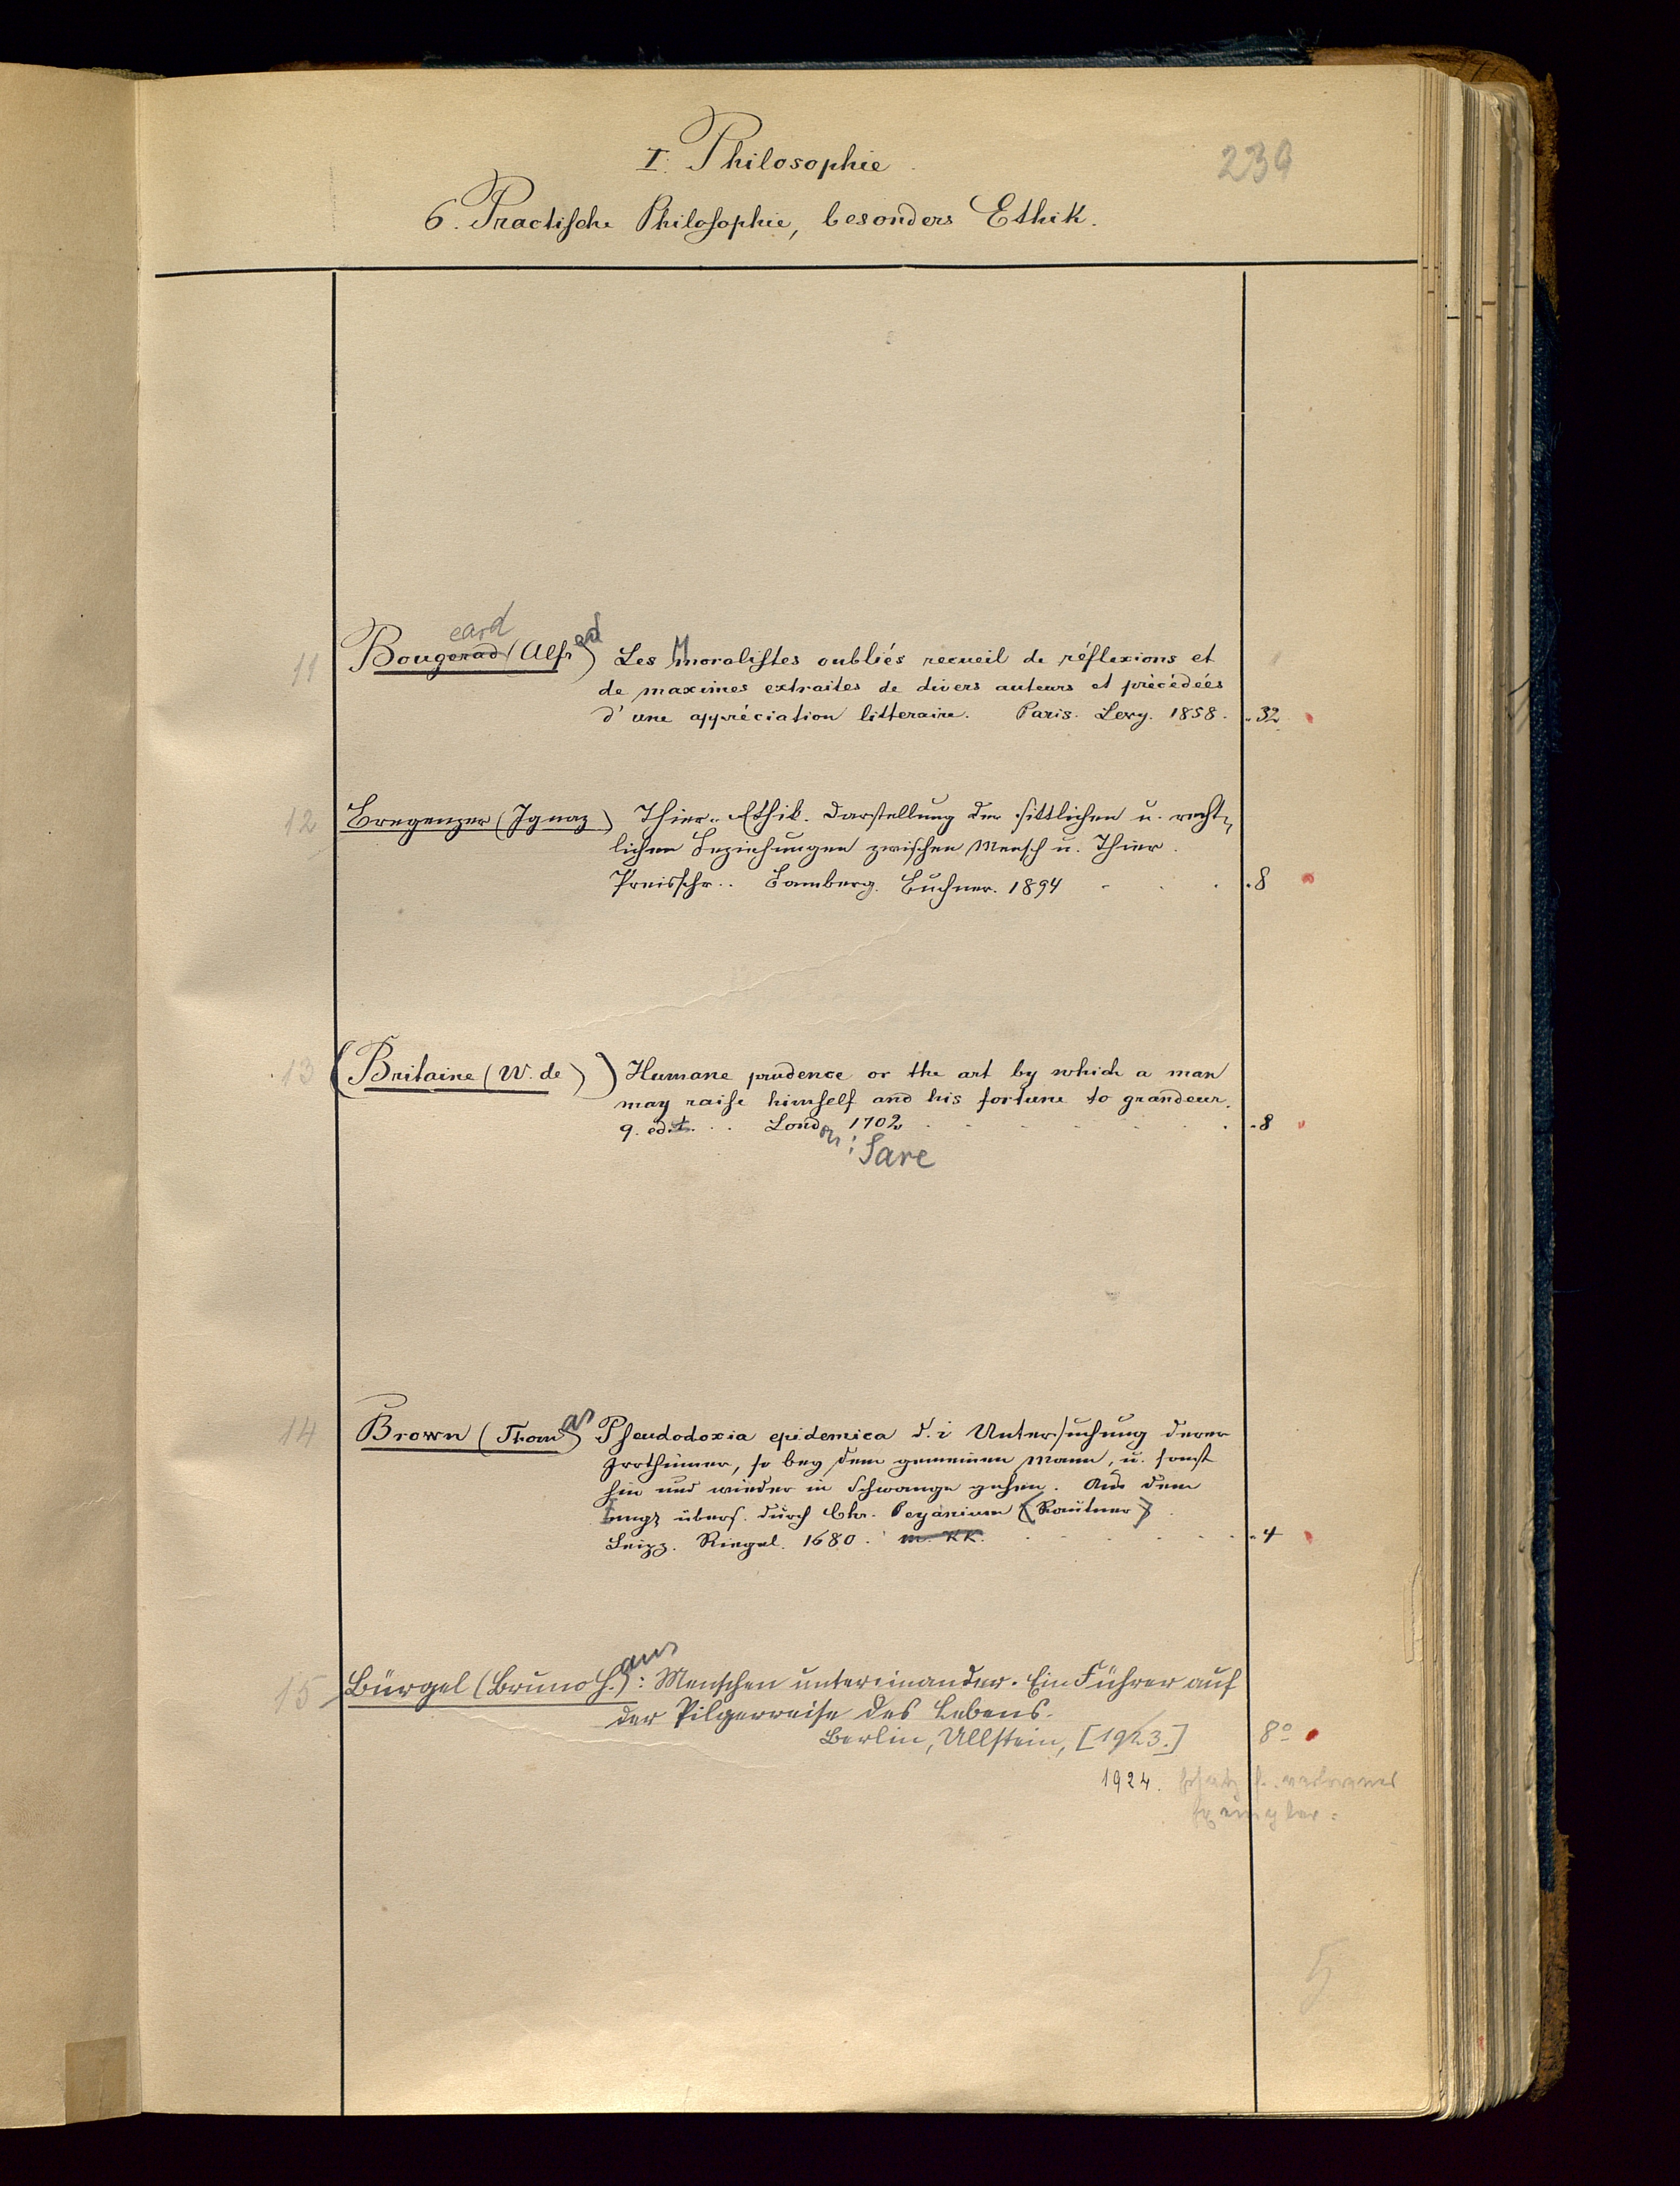 I. Philosophie.
239
6. Practische Philosophie, besonders Ethik.
eard
11 Bougerad (Alfred) Les Moralistes oubliés recueil de réflexions et
de maximes extraites de divers auteurs et précédées
d'une appréciation litteraire. Paris. Levy. 1858. . 32
12 Bregenzer (Ignaz) Thier-Ethik. Darstellung der sittlichen u. recht-
lichen Beziehungen zwischen Mensch u. Thier.
Preisschr.. Bamberg. Buchner. 1894 . 8
13 (Britaine (W. de)) Humane prudence or the art by which a man
may raise himself and his fortune to grandeur.
9. edit. . . London 1702 . 8
: Sare
14 Brown (Thomas) Pseudodoxia epidemica d. i Untersuchung derer
Irrthümer, so bey dem gemeinen Mann, u. sonst
hin und wieder in Schwange gehen. Aus dem
Engl übers. durch Chr. Peganium (Rautner)
Leipz. Riegel. 1680. m. KK. . 4
15 Bürgel (Bruno Hans): Menschen untereinander. Ein Führer auf
der Pilgerreise des Lebens.
Berlin, Ullstein, [1923.] 8°
1924. Ersatz f. verlorenes
Exemplar.
5